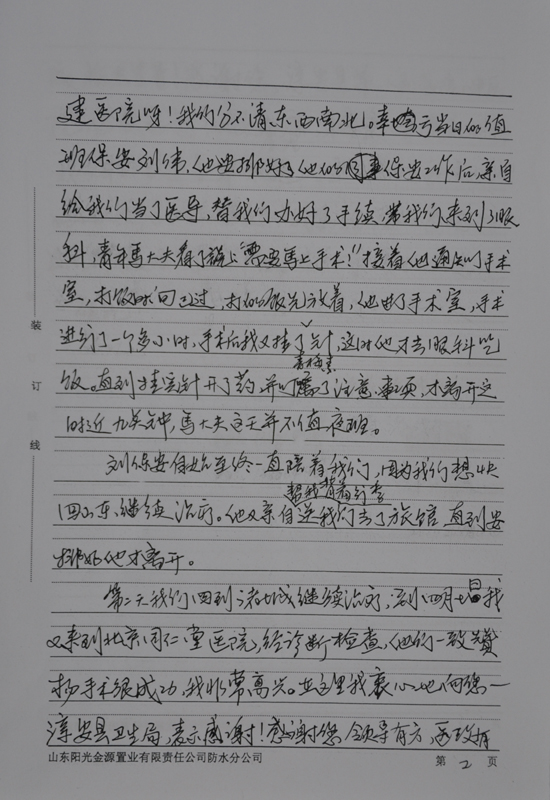 建医院呀！我们分不清东西南北。幸亏当日的值
班保安刘伟，他安排好了他的同事保安工作后，亲自
给我们当了医导，替我们办好了手续，带我们来到了眼
科，青年马大夫看了说"需要马上手术！"接着他通知了手术
室，打饭时间已过，打的饭先放着，他进了手术室，手术
进行了一个多小时，手术后我又挂了青梅素针，这时他才去眼科吃
饭。直到挂完针开了药，并叮嘱了注意事项，才离开已
时近九点钟，马大夫这天并不值夜班。
刘保安自始至终一直陪着我们，因为我们想快
回山东继续治疗。他又亲自帮我背着行李送我们去了旅馆，直到安
排好他才离开。
第二天我们回到诸城继续治疗，到四月
又来到北京同仁堂医院，经诊断检查，他们一致赞
扬手术很成功，我非常高兴。在这里我衷心地向您一
淳安县卫生局，表示感谢！感谢您领导有方，医政有
装
订
线
山东阳光金源置业有限责任公司防水分公司
第 2 页